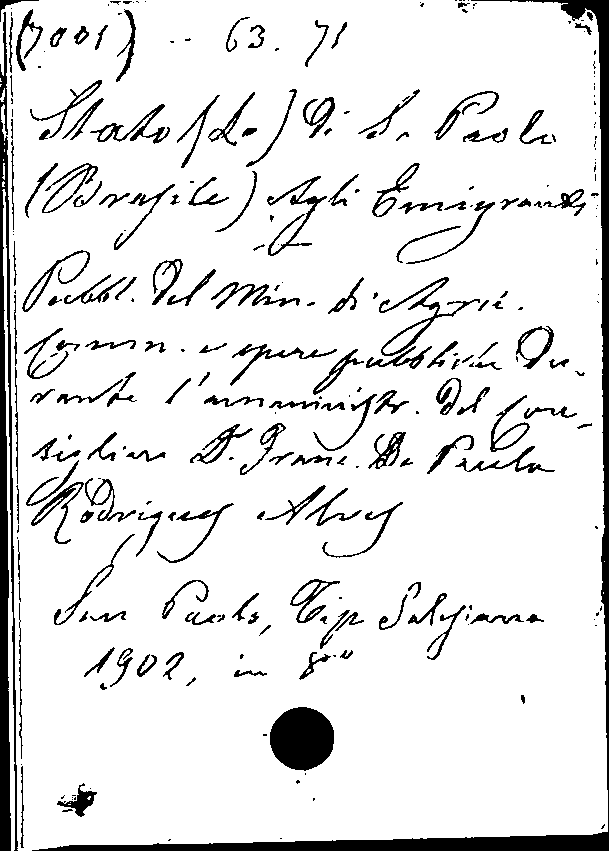 (7001) -- 63. 71
Stato (Lo) di S. Paolo
(Brasile) Agli Emigranti
Pubbl. del Min. di Agric.
Comm. e opere pubbliche du-
rante l'amministr. del Con-
sigliere D. Franc. De Paula
Rodrigues Alves
San Paolo, Tip Salesiana
1902, in 8vo